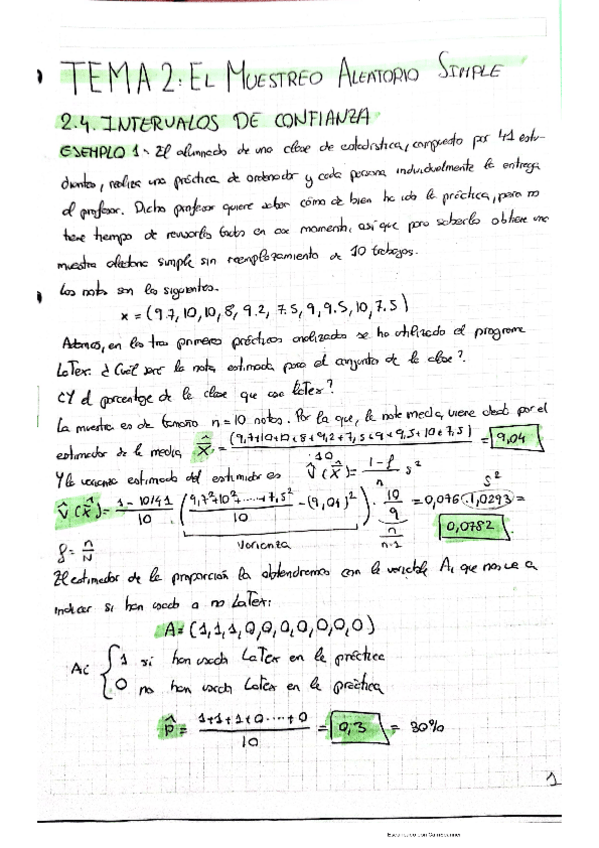 TEMA 2: EL MUESTREO ALEATORIO SIMPLE
2.4. INTERVALOS DE CONFIANZA
EJEMPLO 1.- El alumnado de una clase de estadística, compuesto por 41 estu-
diantes, realiza una práctica de ordenador y cada persona individualmente la entrega
al profesor. Dicho profesor quiere saber cómo de bien ha ido la práctica, pero no
tiene tiempo de revisarlos todos en ese momento, así que para saberlo obtiene una
muestra aleatoria simple sin reemplazamiento de 10 trabajos.
Las notas son las siguientes.
x = (9.7, 10, 10, 8, 9.2, 7.5, 9, 9.5, 10, 7.5)
Además, en las tres primeras prácticas analizadas se ha utilizado el programa
LaTex. ¿Cuál será la nota estimada para el conjunto de la clase?.
¿Y el porcentaje de la clase que usa LaTex?
La muestra es de tamaño n=10 notas. Por lo que, la nota media, viene dada por el
estimador de la media X̂ = (9,7+10+10+8+9,2+7,5+9+9,5+10+7,5) / 10 = 9,04
Y la varianza estimada del estimador es V̂(X̂) = 1-f / n s²
V̂(X̂) = 1-10/41 / 10 · (9,7²+10²+.....+7,5² / 10 - (9,04)²) · 10/9 = 0,076 · 1,0293 = 0,0782
s²
n / n-1
varianza
f = n/N
El estimador de la proporción la obtendremos con la variable A, que nos va a
indicar si han usado o no LaTex:
A = (1,1,1,0,0,0,0,0,0,0)
Ai { 1 si han usado LaTex en la práctica
0 no han usado LaTex en la práctica
p̂ = 1+1+1+0....+0 / 10 = 0,3 = 30%
1
Escaneado con CamScanner